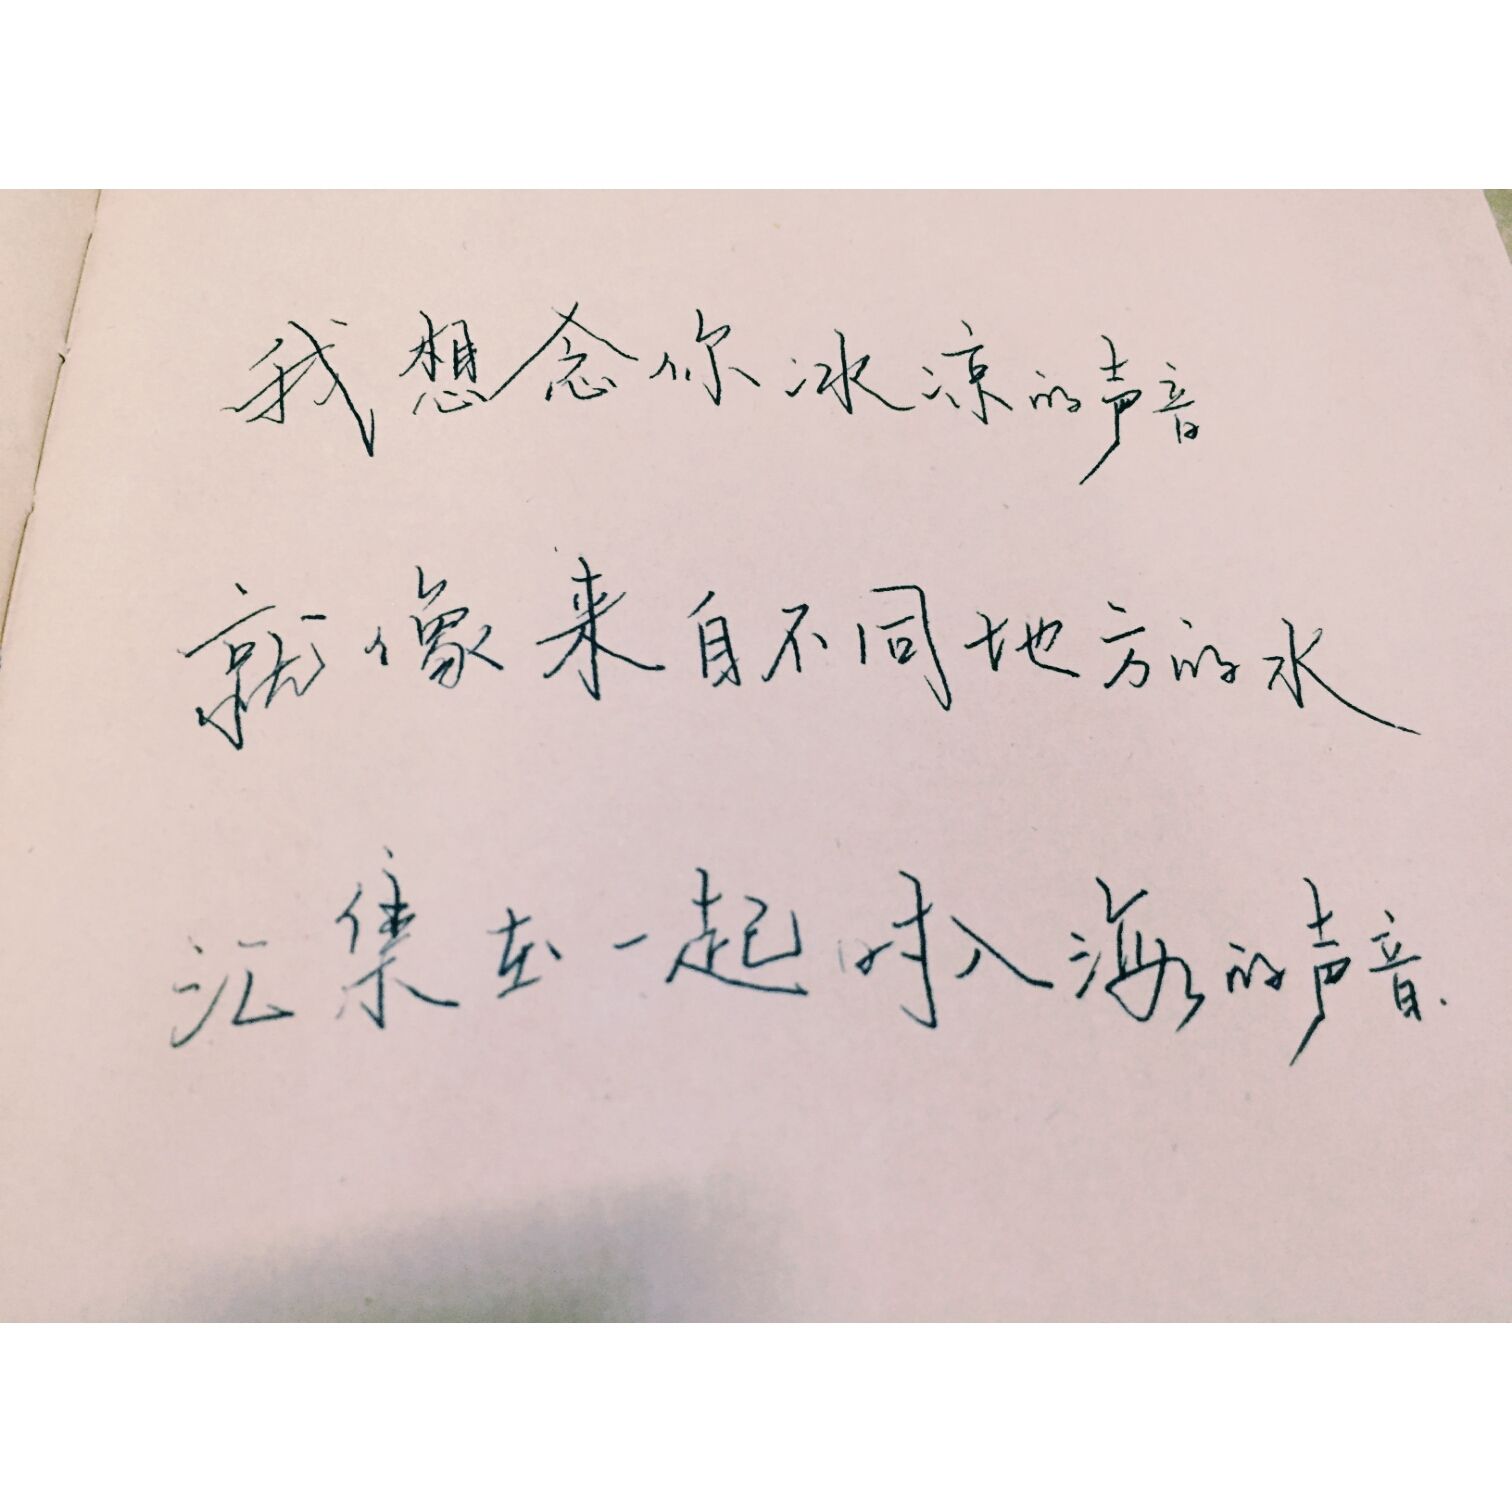 我想念你冰凉的声音
就像来自不同地方的水
汇集在一起时入海的声音.